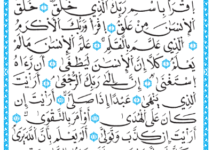 ٱقۡرَأۡ بِٱسۡمِ رَبِّكَ ٱلَّذِي خَلَقَ خَلَقَ
ٱلۡإِنسَٰنَ مِنۡ عَلَقٍ ٱقۡرَأۡ وَرَبُّكَ ٱلۡأَكۡرَمُ
ٱلَّذِي عَلَّمَ بِٱلۡقَلَمِ عَلَّمَ ٱلۡإِنسَٰنَ مَا لَمۡ
يَعۡلَمۡ كَلَّآ إِنَّ ٱلۡإِنسَٰنَ لَيَطۡغَىٰٓ أَن رَّءَاهُ
ٱسۡتَغۡنَىٰٓ إِنَّ إِلَىٰ رَبِّكَ ٱلرُّجۡعَىٰٓ أَرَءَيۡتَ
ٱلَّذِي يَنۡهَىٰ عَبۡدًا إِذَا صَلَّىٰٓ أَرَءَيۡتَ إِن
كَانَ عَلَى ٱلۡهُدَىٰٓ أَوۡ أَمَرَ بِٱلتَّقۡوَىٰٓ
أَرَءَيۡتَ إِن كَذَّبَ وَتَوَلَّىٰٓ أَلَمۡ يَعۡلَم بِأَنَّ ٱللَّهَ يَرَىٰ